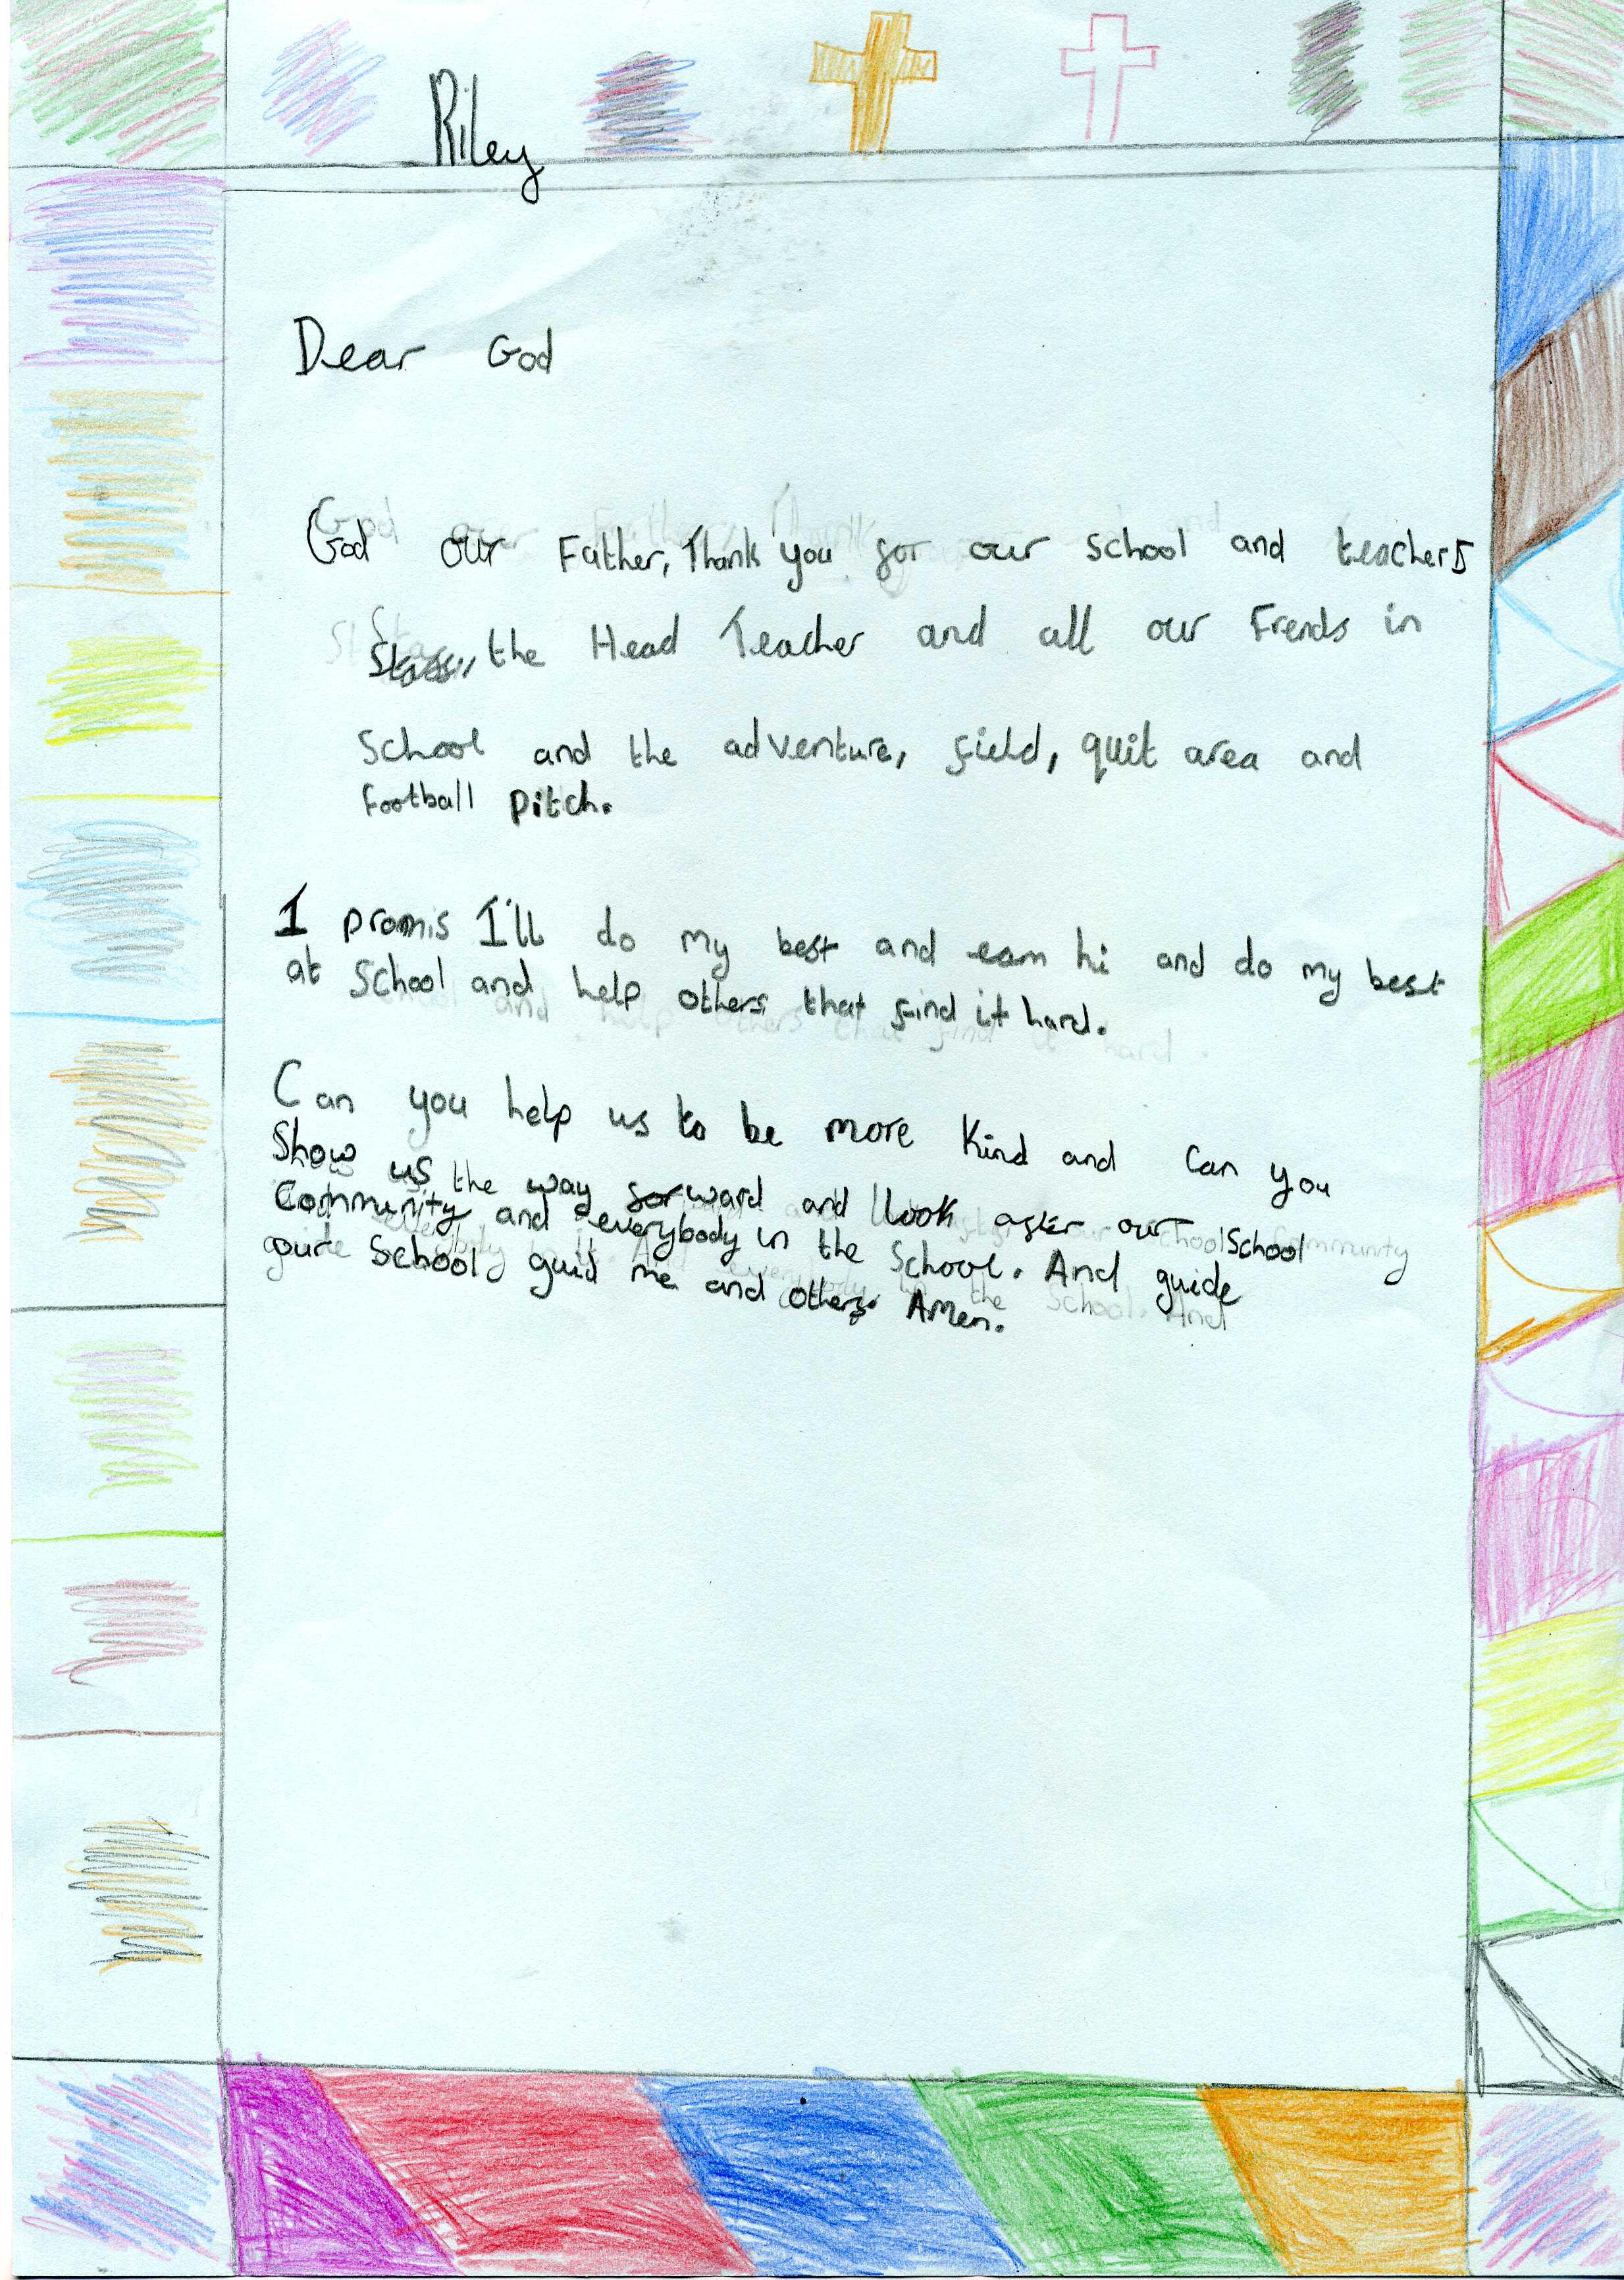 Riley
Dear God
God our Father, Thank you for our school and teachers
Staff, the Head Teacher and all our Frends in
School and the adventure, field, quit area and
football pitch.
I promis I'll do my best and eam hi and do my best
at School and help others that find it hard.
Can you help us to be more Kind and can you
Show us the way forward and look after our School
Community and everybody in the School. And guide
our School guid me and others. Amen.